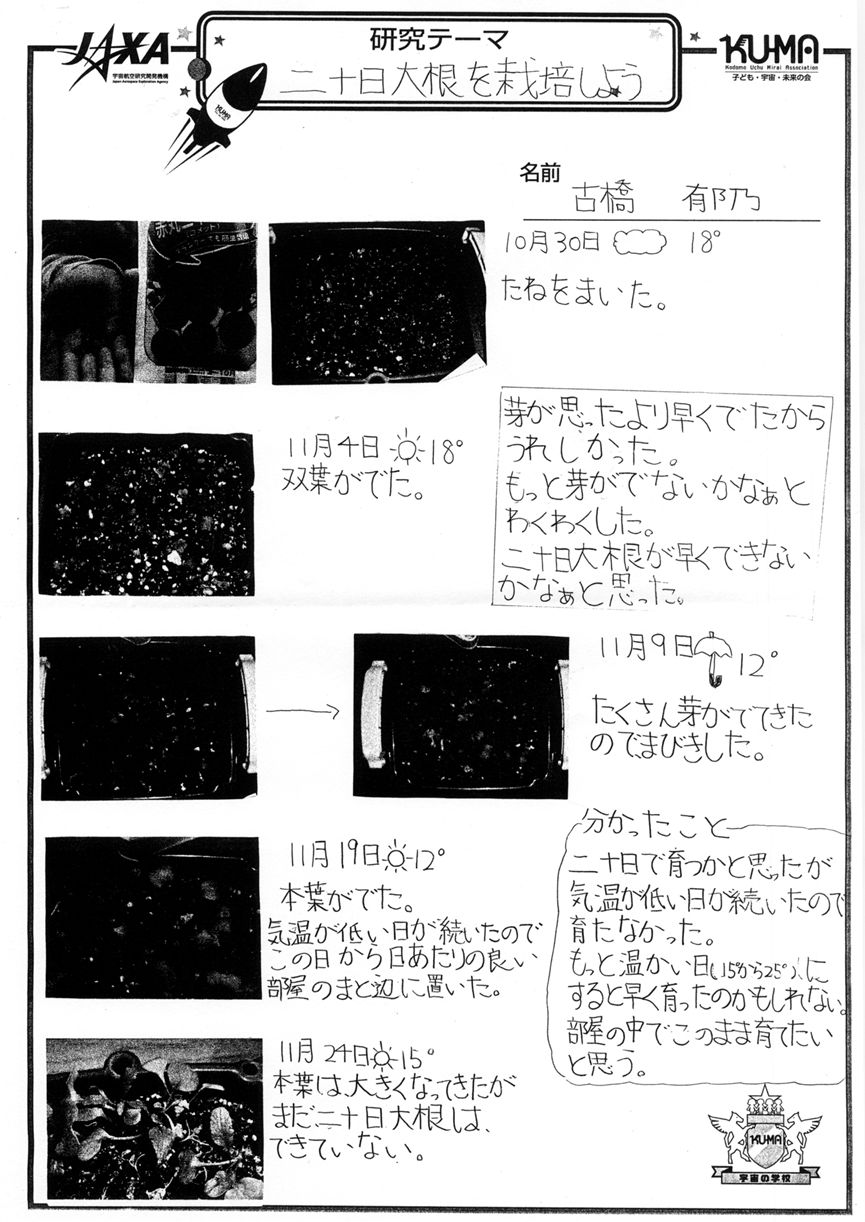 JAXA
宇宙航空研究開発機構
Japan Aerospace Exploration Agency
研究テーマ
二十日大根を栽培しよう
KUMA
KU-MA
Kodomo Uchu Mirai Association
子ども・宇宙・未来の会
名前
古橋 有乃
赤丸二
10月30日 18°
たねをまいた。
11月4日 18°
双葉がでた。
芽が思ったより早くでたから
うれしかった。
もっと芽がでないかなぁと
わくわくした。
二十日大根が早くできない
かなぁと思った。
11月9日 12°
たくさん芽がでてきた
のでまびきした。
11月19日 12°
本葉がでた。
気温が低い日が続いたので
この日から日あたりの良い
部屋のまど辺に置いた。
11月24日 15°
本葉は、大きくなってきたが
まだ二十日大根は、
できていない。
分かったこと
二十日で育つかと思ったが
気温が低い日が続いたので
育たなかった。
もっと温かい日(15°から25°)に
すると早く育ったのかもしれない。
部屋の中でこのまま育てたい
と思う。
KU-MA
宇宙の学校